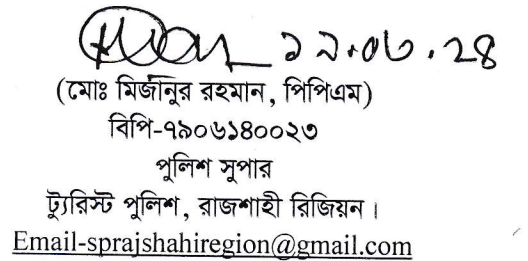 ১২.০৬.২৪
(মোঃ মির্জানুর রহমান, পিপিএম)
বিপি-৭৯০৬১৪০০২৩
পুলিশ সুপার
ট্যুরিস্ট পুলিশ, রাজশাহী রিজিয়ন।
Email-sprajshahiregion@gmail.com